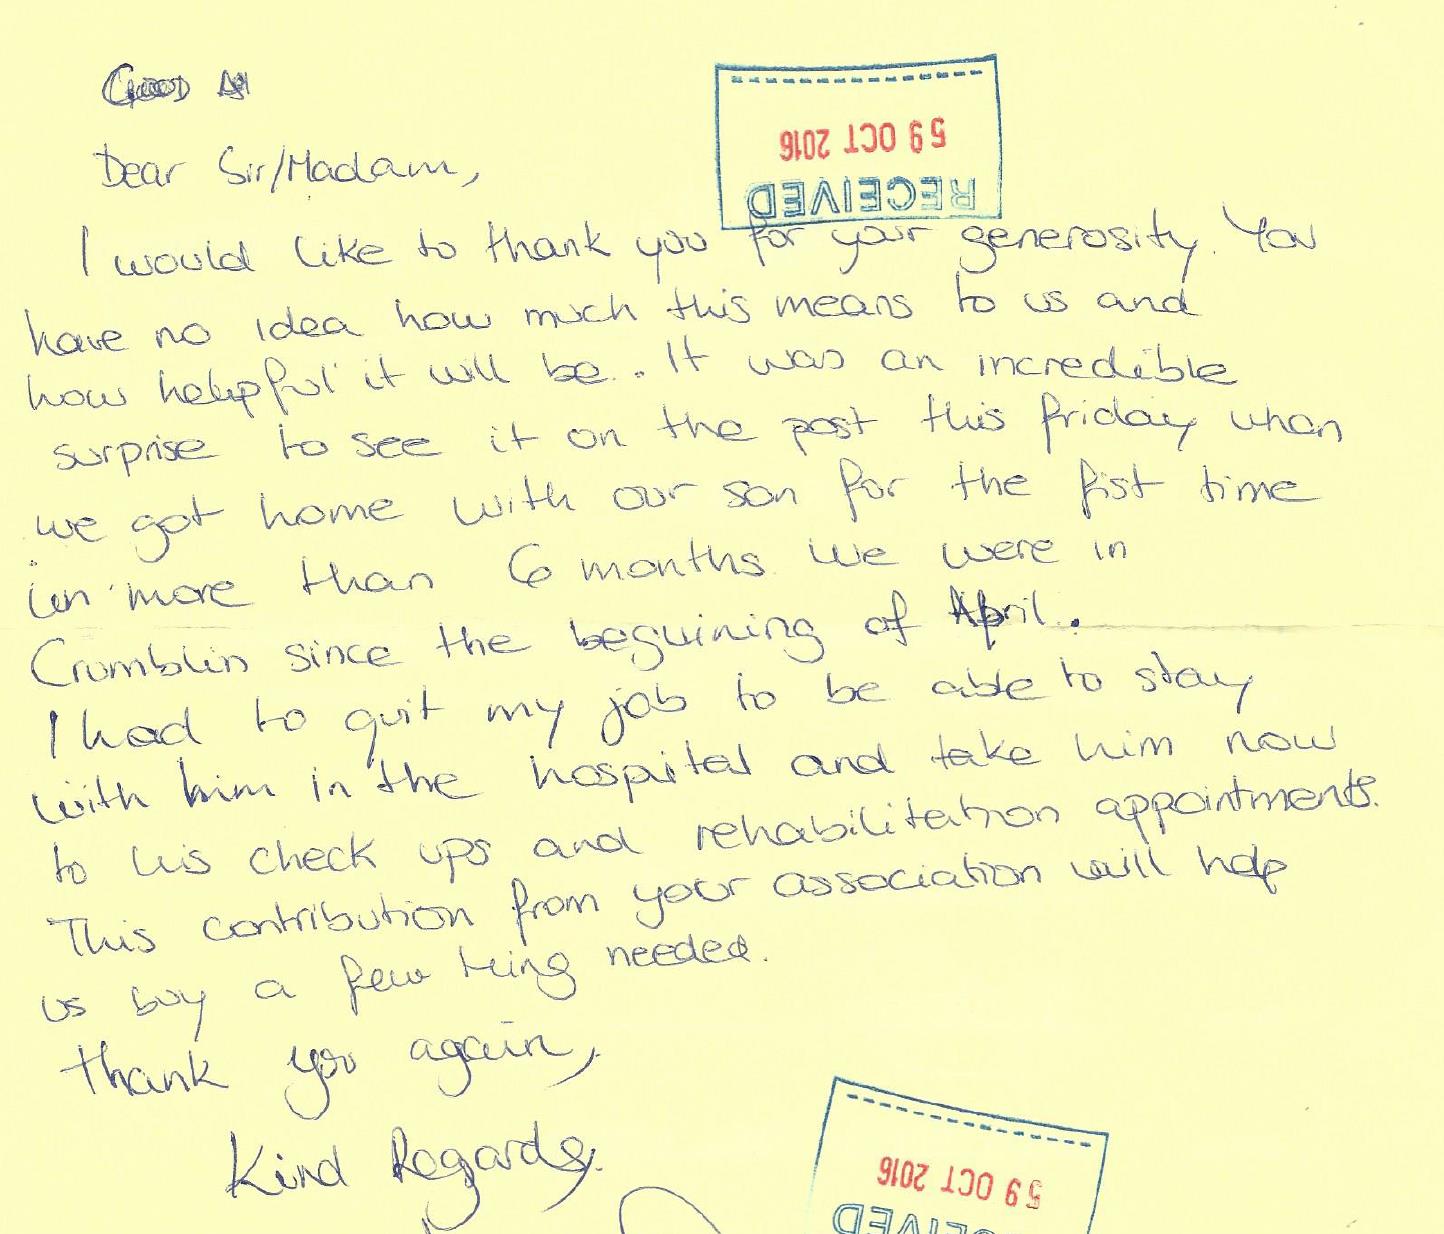 Dear Sir/Madam,
RECEIVED
OCT 2016
I would like to thank you for your generosity. You
have no idea how much this means to us and
how helpful it will be. It was an incredible
surprise to see it on the post this friday whan
we got home with our son for the fist time
in more than 6 months. We were in
Crumblin since the beguining of April.
I had to quit my job to be able to stay
with him in the hospital and take him now
to his check ups and rehabilitation appointments.
This contribution from your association will help
us buy a few thing needed.
Thank you again,
Kind Regards,
OCT 2016